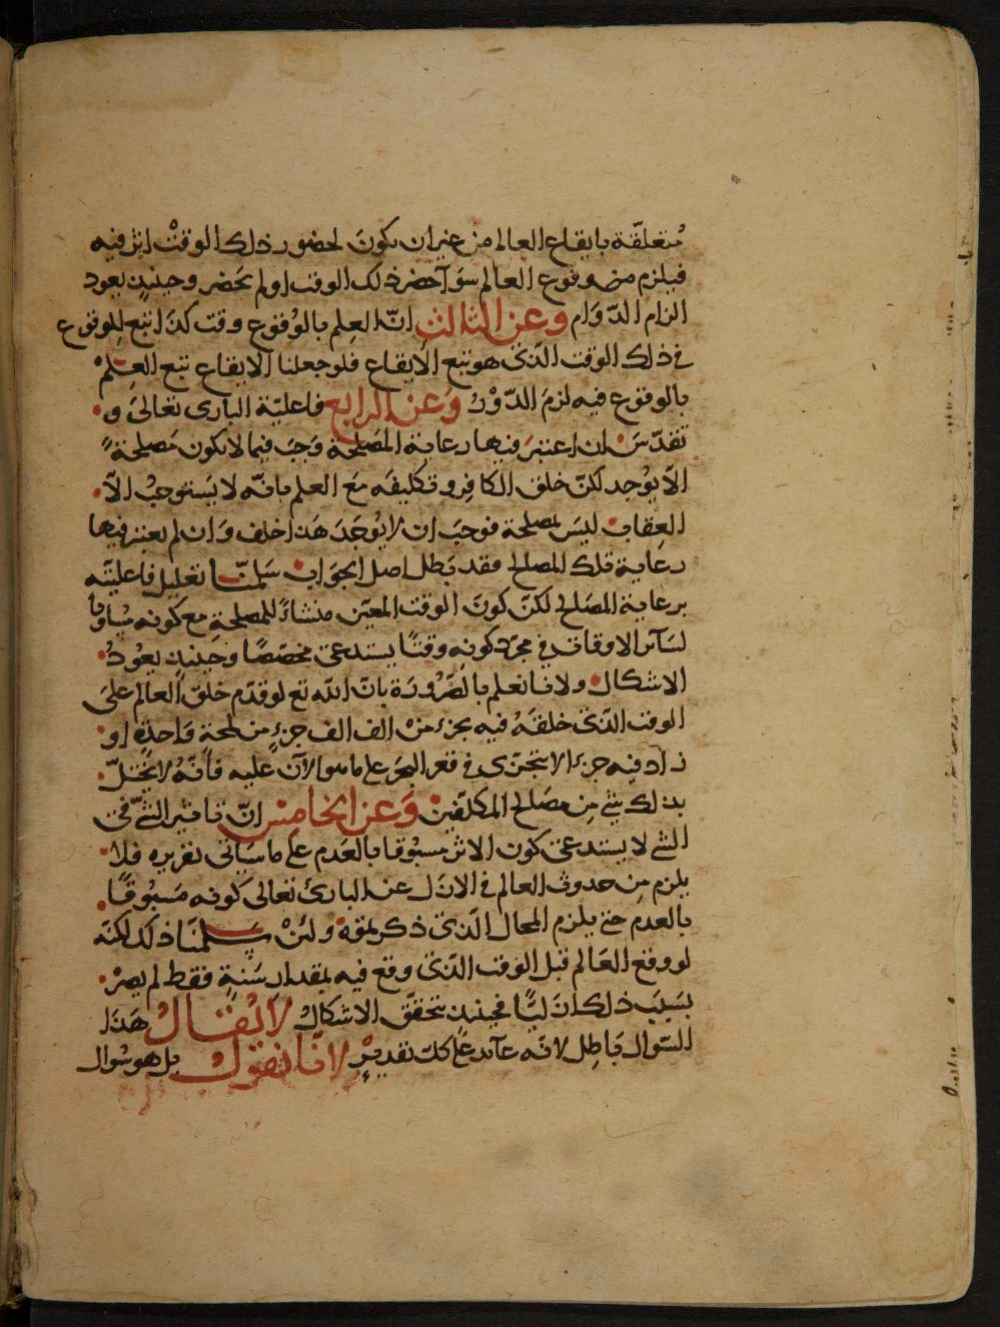 متعلقة بايقاع العالم من غير ان يكون لحضور ذلك الوقت اثر فيه
فيلزم من وقوع العالم سوآ حضر ذلك الوقت اولم يحضر وحينئذ يعود
الزام الدوام وعن الثالث ان العلم بالوقوع وقت كذا تبع للوقوع
في ذلك الوقت الذى هو تبع الايقاع فلو جعلنا الايقاع تبع العلم
بالوقوع فيه لزم الدور وعن الرابع فاعلية البارى تعالى و
تقدس ان اعتبر فيها رعاية المصلحة وجب فيما لا تكون مصلحة
الا يوجد لكن خلق الكافر وتكليفه مع العلم بانه لا يستوجب الا
العقاب ليس لمصلحة فوجب ان لا يوجد هذا خلف وان لم يعتبر فيها
رعاية تلك المصالح فقد بطل اصل الجواب سلمنا تعليل فاعليته
برعاية المصالح لكن كون الوقت المعين منشاء للمصلحة مع كونه مساويا
لسآئر الاوقات في مجرد كونه وقتا يستدعى مخصصا وحينئذ يعود
الاشكال ولانا نعلم بالضرورة بان الله تع لو قدم خلق العالم على
الوقت الذى خلقه فيه بجزء من الف الف جزء من لمحة واحدة او
زاد فيه جزءا لا يتجزى في قعر البحر على ما هو الآن عليه فانه لا يختل
بذلك شئ من مصالح المكلفين وعن الخامس ان تاثير الشئ في
الشئ لا يستدعى كون الاثر مسبوقا بالعدم على ما سياتى تقريره فلا
يلزم من حدوث العالم في الازل عند البارئ تعالى كونه مسبوقا
بالعدم حتى يلزم المحال الذى ذكرتموه ولئن سلمنا ذلك لكنه
لو وقع العالم قبل الوقت الذى وقع فيه بمقدار سنة فقط لم يصر
بسبب ذلك ازليا فحينئذ تحقق الاشكال لا يقال هذا
السؤال باطل لانه عآئد على كل تقدير لانا نقول بل هو سؤال